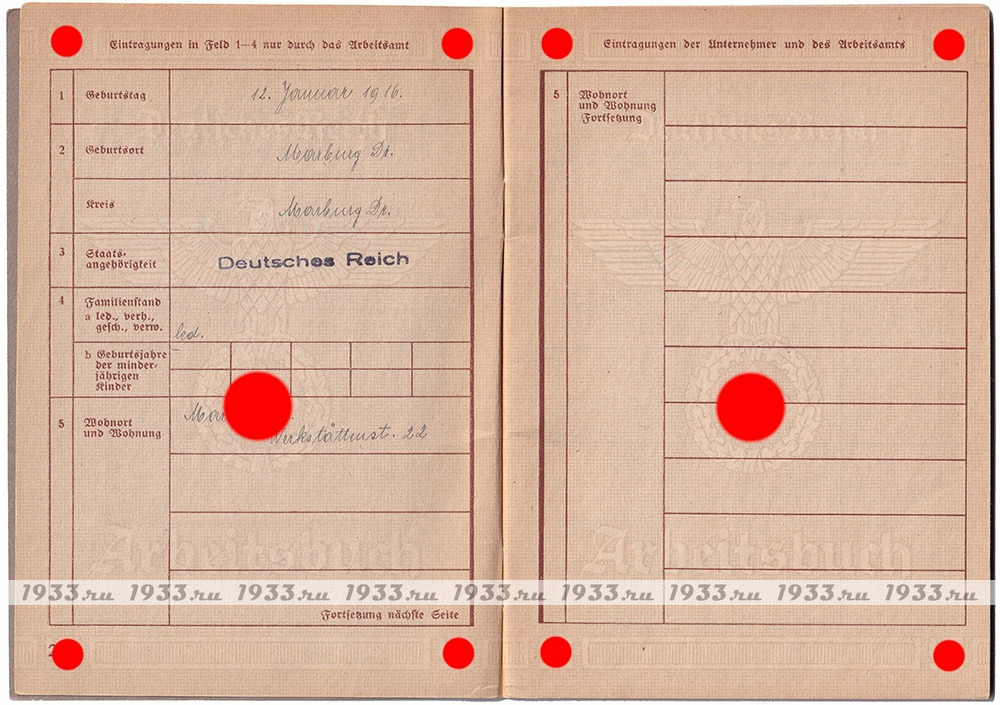 Eintragungen in Feld 1–4 nur durch das Arbeitsamt
1 Geburtstag 12. Januar 1916.
2 Geburtsort Marburg Dr.
Kreis Marburg Dr.
3 Staats-
angehörigkeit Deutsches Reich
4 Familienstand
a led., verh.,
gesch., verw. led.
b Geburtsjahre
der minder-
jährigen
Kinder
5 Wohnort
und Wohnung
Werkstättenst. 22
Arbeitsbuch
Fortsetzung nächste Seite
2
Eintragungen der Unternehmer und des Arbeitsamts
5 Wohnort
und Wohnung
Fortsetzung
Arbeitsbuch
1933.ru 1933.ru 1933.ru 1933.ru 1933.ru 1933.ru 1933.ru 1933.ru 1933.ru